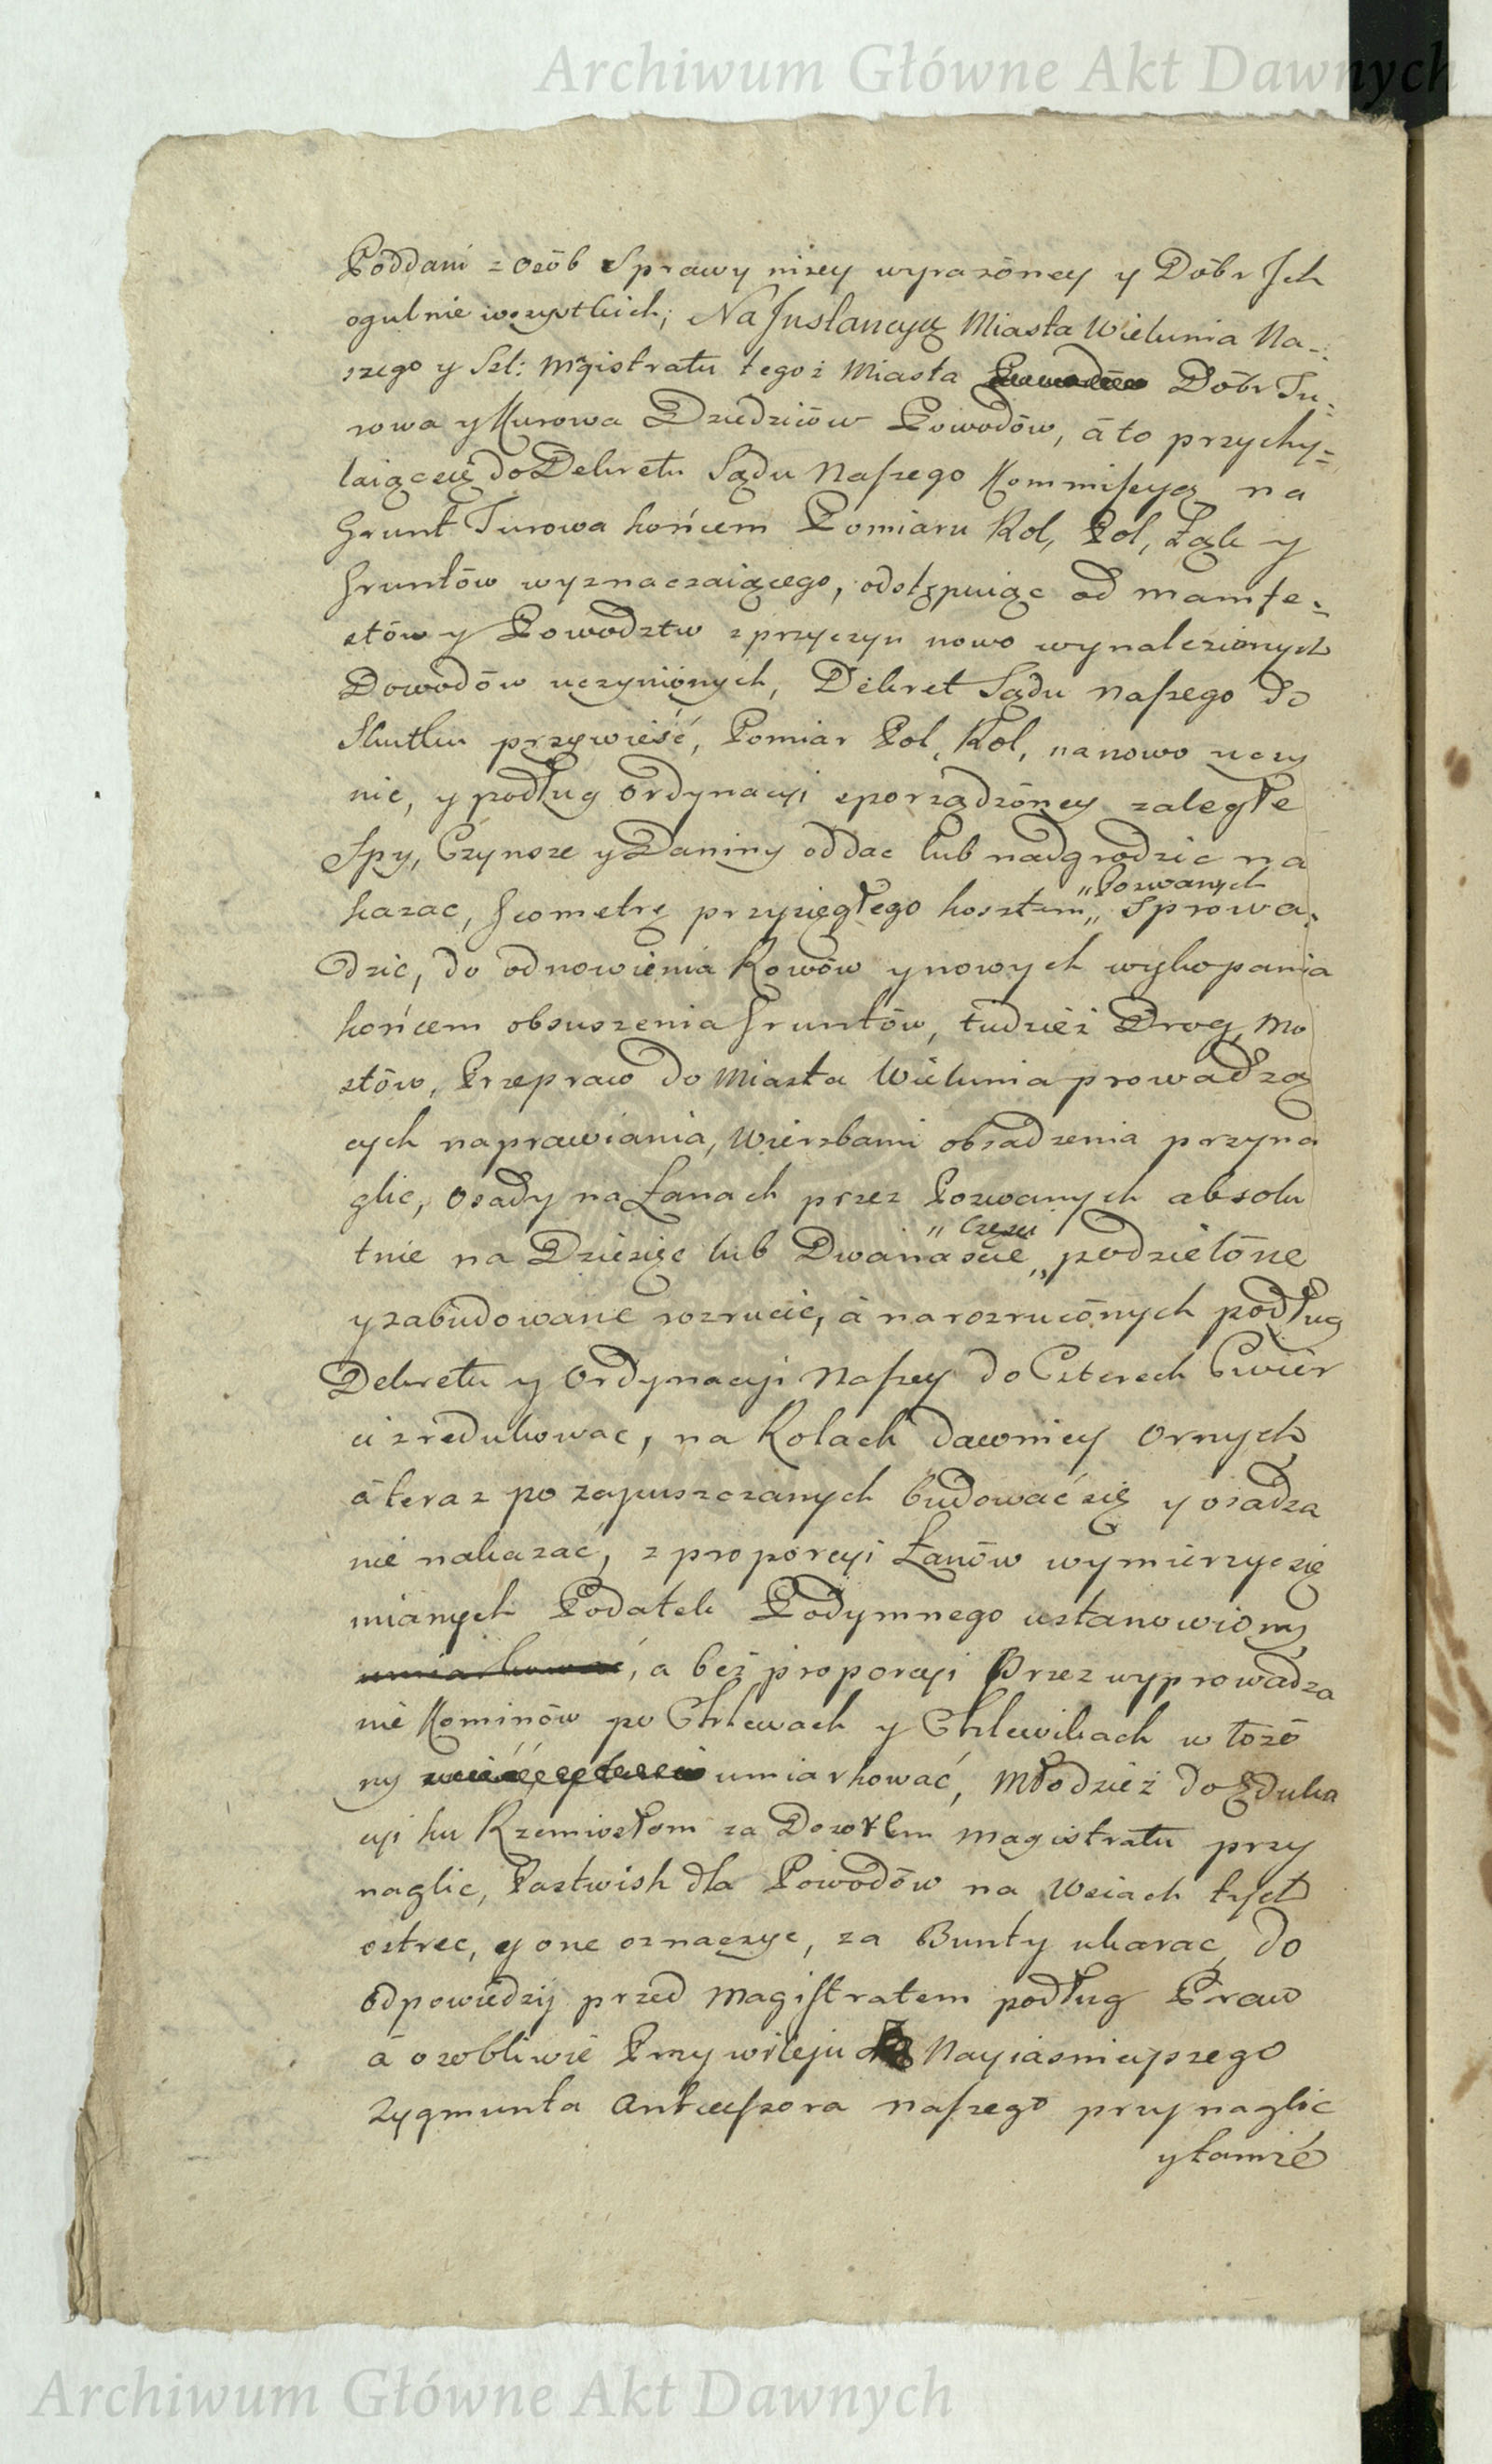 Archiwum Główne Akt Dawnych
Poddani z Osób Sprawy niżey wyrażóney y Dóbr Jch
ogulnie wszystkich; Na Jnstancyą Miasta Wielunia Na=
szego y Szl: Mgistratu tegoż Miasta Dóbr Tu=
rowa y Kurowa Dziedziców Powodów, á to przychy=
laiąc się do Dekretu Sądu Naszego Kommisyą na
Grunt Turowa końcem Pomiaru Rol, Pol, Łąk y
Gruntów wyznaczaiącego, odstępuiąc od manife=
stów y Powodztw z przyczyn nowo wynalezionych
Dowodów uczyniónych, Dekret Sądu Naszego do
Skutku przywieść, Pomiar Pol, Rol, na nowo uczy
nic, y podług Ordynacyi sporządzóney zaległe
Spy, Czynsze y Daniny oddac lub nadgrodzic na
kazac, Jeometrę przysięgłego kosztem „ Sprowa=
„ Pozwanych
dzic, do odnowienia Rowów y nowych wykopania
końcem obsuszenia Gruntów, tudzież Drog, Mo
stów, Przepraw do Miasta Wielunia prowadzą
cych naprawiania, Wierzbami obsadzenia przyna
glic, Osady na Łanach przez Pozwanych absolu
tnie na Dziesięc lub Dwanascie „ podzielóne
„ Częsci
y zabudowane rozrucic, á na rozruconych podług
Dekretu y Ordynacyi Naszey do Czterech Cwier
ci zredukowac, na Rolach dawniey Ornych
á teraz po zapuszczanych budować się y osadza
nie nakazać, z proporcyi Łanów wymierzyc się
mianych Podatek Podymnego ustanowiony
, a beż proporcyi Przez wyprowadza
nie Kominów po Chlewach y Chlewikach w łożó
ny umiarkować, Młodzież do Eduka
cyi ku Rzemiosłom za Dozorem Magistratu przy
naglic, Pastwisk dla Powodów na Wsiach tych
ostrec, y one oznaczyc, za Bunty ukarac, do
odpowiedzij przed Magistratem podług Praw
á osobliwie Przywileju Nayiasnieyszego
Zygmunta Antecessora naszego przynaglic
y tamże
Archiwum Główne Akt Dawnych